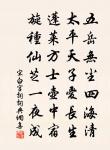 五岳無塵四海清
太平天子愛長生
蓬萊方士壺中宿
旋種仙芝一夜成
宋白宮詞